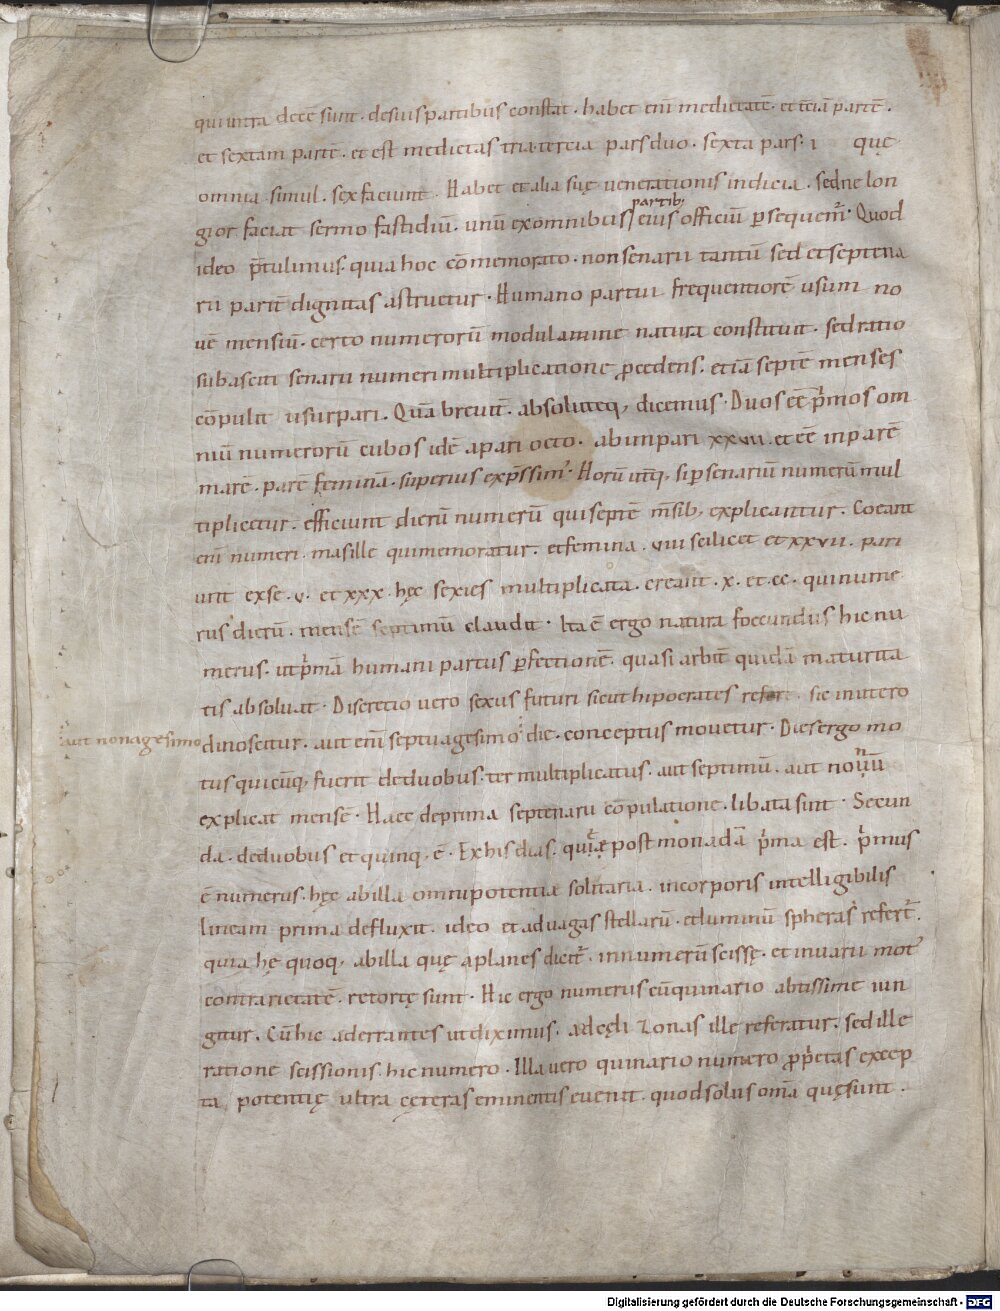 qui intra decē sunt · de suis partibus constat · habet enī medietatē · et t̄ciā partē ·
et sextam partē · et est medietas tria · tercia pars duo · sexta pars · i quę
omnia simul · sex faciunt · Habet et alia suę venerationis indicia · sed ne lon
gior faciat sermo fastidiū · unū ex omnibus partib; eius officiū p̄sequem̄ · Quod
ideo p̄tulimus · quia hoc cōmemorato · non senarii tantū sed et septena
rii paritē dignitas astruetur · Humano partui frequentiorē usum no
vē mensiū · certo numerorū modulamine natura constituit · sed ratio
sub asciti senarii numeri multiplicatione p̄cedens · etiā septē menses
cōpulit usurpari · Quā brevit̄ · absoluteq; dicemus · Duos eē p̄mos om
niū numerorū cubos idē a pari octo · ab impari xxvii · et eē inparē
marē · parē feminā · superius exp̄ssim; · Horū utq̄; si p̄ senariū numerū mul
tiplicetur · efficiunt dierū numerū qui septē m̄sib; explicantur · Coeant
enī numeri · mas ille qui memoratur · et femina · viii scilicet et xxvii · pari
unt ex se · v · et xxx · hęc sexies multiplicata · creant · x · et cc · qui nume
rus dierū · mensē septimū claudit · Ita ē ergo natura foecundus hic nu
merus · ut p̄mā humani partus p̄fectionē · quasi arbit̄ quidā maturita
tis absoluat · Discretio uero sexus futuri sicut hipocrates refert · sic in utero
dinoscitur · aut enī septuagesimo die · conceptus movetur · Dies ergo mo
aut nonagesimo
tus quicūq; fuerit de duobus · ter multiplicatus · aut septimū · aut novū
explicat mensē · Haec de prima septenarii cōpulatione · libata sint · Secun
da · de duobus et quinq; ē · Ex his dias · quę post monadā p̄ma est · p̄mus
ē numerus · hęc ab illa omnipotentia solitaria · in corporis intelligibilis
lineam prima defluxit · ideo et ad vagas stellarū · et luminū spheras refert̄ ·
quia hę quoq; ab illa quę aplanes dicit̄ · in numerū scissę · et in varii mot;
contrarietatē · retortę sunt · Hic ergo numerus cū quinario abtissime iun
gitur · Cū hic ad errantes ut diximus · ad cęli zonas ille referatur · sed ille
ratione scissionis · hic numero · Illa vero quinario numero p̄p̄etas excep
ta potentię ultra cęteras eminentis evenit · quod solus omā quę sunt ·
Digitalisierung gefördert durch die Deutsche Forschungsgemeinschaft - DFG